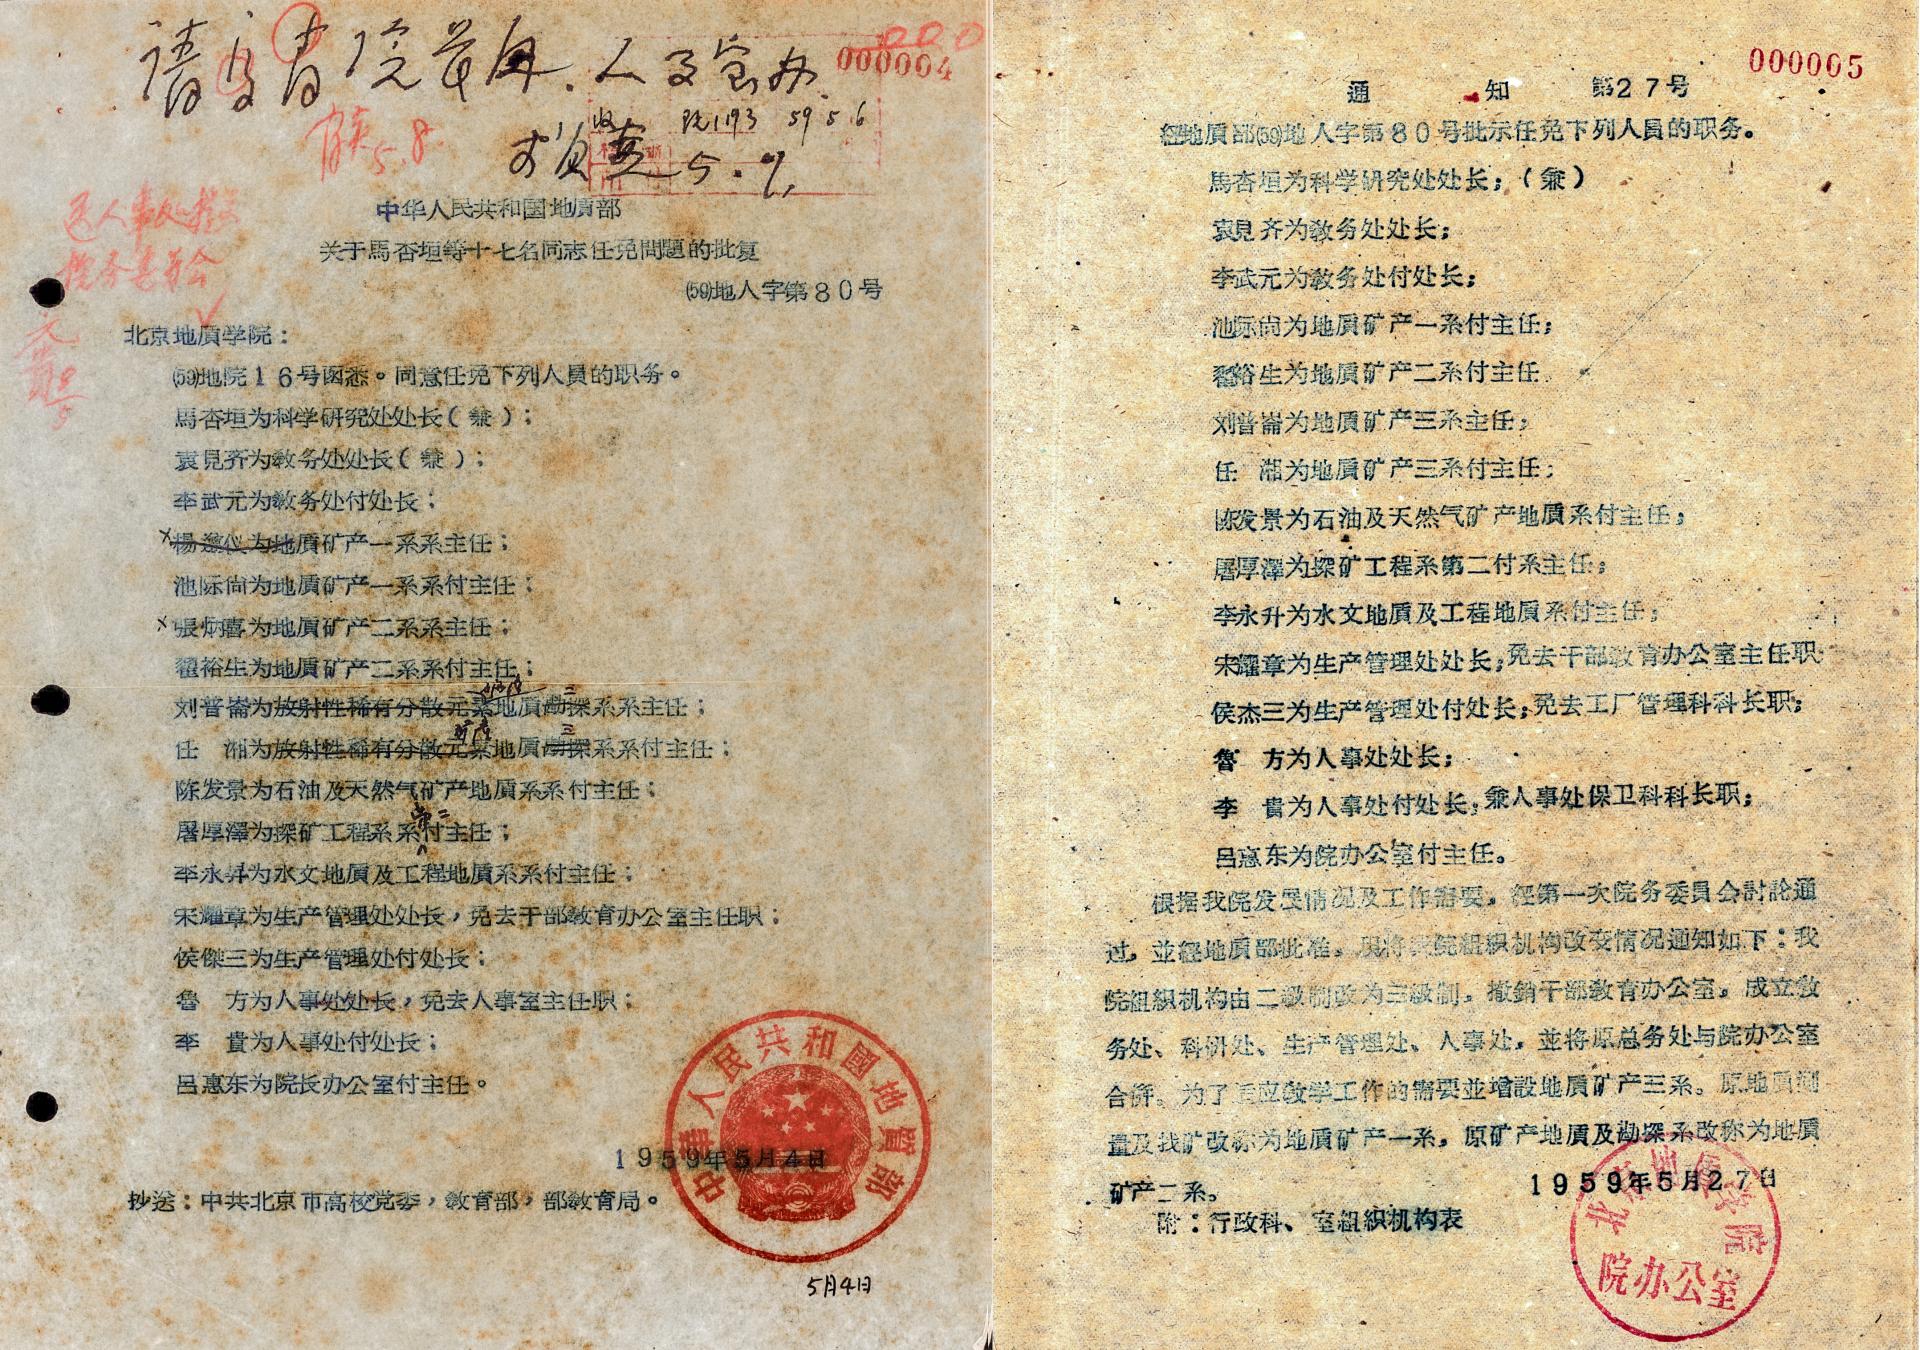 000004
收 院1193 59 5 6
5.8.
5.7.
中华人民共和国地質部
关于馬杏垣等十七名同志任免問題的批复
(59)地人字第80号
北京地質学院：
(59)地院16号函悉。同意任免下列人員的职务。
馬杏垣为科学研究处处长（兼）；
袁見齐为教务处处长（兼）；
李武元为教务处付处长；
楊遵仪为地質矿产一系系主任；
池际尚为地質矿产一系系付主任；
張炳熹为地質矿产二系系主任；
翟裕生为地質矿产二系系付主任；
刘普崙为放射性稀有分散元素地質勘探系系主任；
任　湘为放射性稀有分散元素地質勘探系系付主任；
陈发景为石油及天然气矿产地质系系付主任；
屠厚澤为探矿工程系系付主任；
李永昇为水文地質及工程地質系系付主任；
宋耀章为生产管理处处长，免去干部教育办公室主任职；
侯傑三为生产管理处付处长；
魯　方为人事处处长，免去人事室主任职；
李　貴为人事处付处长；
呂惠东为院长办公室付主任。
1959年5月4日
抄送：中共北京市高校党委，教育部，部教育局。
中華人民共和國地質部
5月4日
000005
通　　知　　第27号
經地質部(59)地人字第80号批示任免下列人員的职务。
馬杏垣为科学研究处处长；（兼）
袁見齐为教务处处长；
李武元为教务处付处长；
池际尚为地質矿产一系付主任；
翟裕生为地質矿产二系付主任
刘普崙为地質矿产三系主任；
任　湘为地質矿产三系付主任；
陈发景为石油及天然气矿产地质系付主任；
屠厚澤为探矿工程系第二付系主任；
李永升为水文地质及工程地质系付主任；
宋耀章为生产管理处处长；免去干部教育办公室主任职
侯杰三为生产管理处付处长；免去工厂管理科科长职；
魯　方为人事处处长；
李　貴为人事处付处长；兼人事处保卫科科长职；
呂惠东为院办公室付主任。
根据我院发展情况及工作需要，經第一次院务委員会討論通
过，並經地质部批准，現将我院組织机构改变情况通知如下：我
院組织机构由二級制改为三級制，撤銷干部教育办公室，成立教
务处、科研处、生产管理处、人事处，並将原总务处与院办公室
合併。为了适应教学工作的需要並增設地质矿产三系。原地质測
量及找矿改称为地质矿产一系，原矿产地质及勘探系改称为地质
矿产二系。
1959年5月27日
附：行政科、室組织机构表
北京地質学院
院办公室